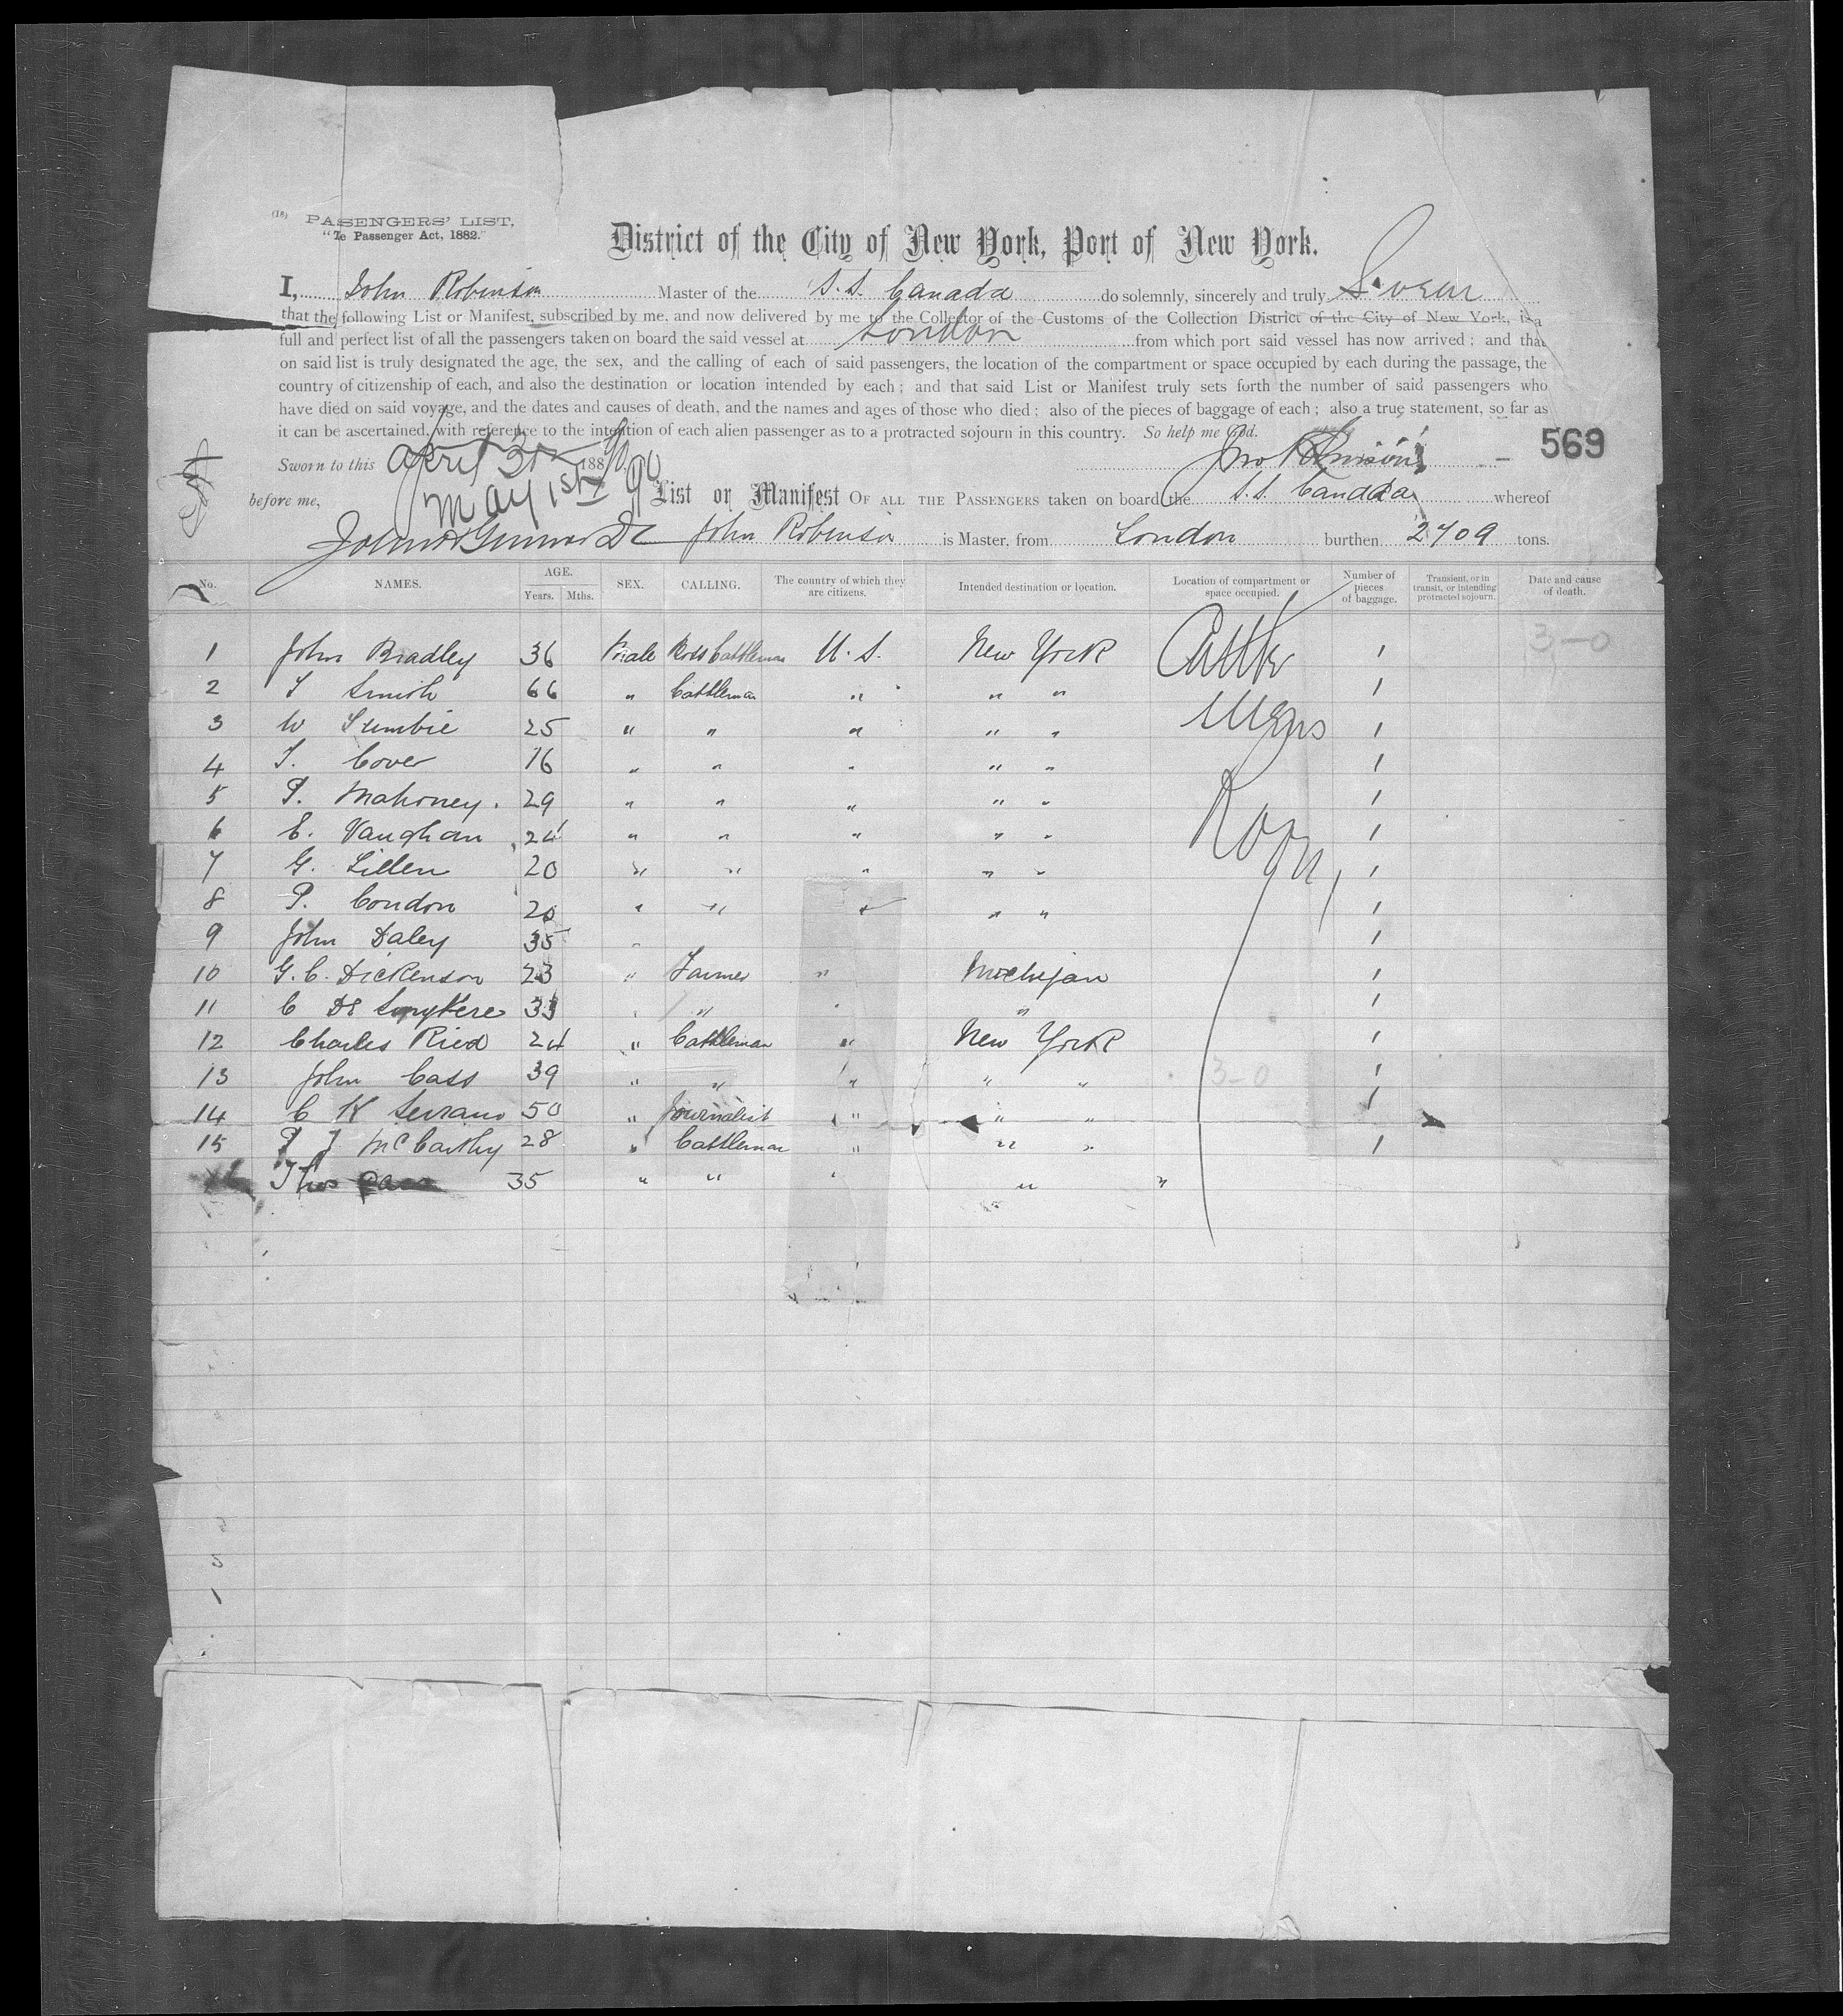 (18) PASENGERS' LIST,
"Te Passenger Act, 1882."
District of the City of New York, Port of New York.
I, John Robinson Master of the S.S. Canada do solemnly, sincerely and truly Swear
that the following List or Manifest, subscribed by me, and now delivered by me to the Collector of the Customs of the Collection District of the City of New York, is a
full and perfect list of all the passengers taken on board the said vessel at London from which port said vessel has now arrived; and that
on said list is truly designated the age, the sex, and the calling of each of said passengers, the location of the compartment or space occupied by each during the passage, the
country of citizenship of each, and also the destination or location intended by each; and that said List or Manifest truly sets forth the number of said passengers who
have died on said voyage, and the dates and causes of death, and the names and ages of those who died; also of the pieces of baggage of each; also a true statement, so far as
it can be ascertained, with reference to the intention of each alien passenger as to a protracted sojourn in this country. So help me God.
Sworn to this April 30 1890 Jno Robinson 569
May 1st 90
before me, List or Manifest OF ALL THE PASSENGERS taken on board the S.S. Canada whereof
John Robinson is Master, from London burthen 2709 tons.
No. NAMES. AGE. Years. Mths. SEX. CALLING. The country of which they are citizens. Intended destination or location. Location of compartment or space occupied. Number of pieces of baggage. Transient, or in transit, or intending protracted sojourn. Date and cause of death.
1 John Bradley 36 Male Boss Cattleman U.S. New York Cattle 1 3-0
2 T Smith 66 " Cattleman " " " 1
3 W 25 " " " " " Mens 1
4 T. Cover 16 " " " " " 1
5 P. Mahoney. 29 " " " " " 1
6 E. Vaughan 24 " " " " " Room 1
7 G. Lillen 20 " " " " " 1
8 P. Condon 20 " " " " " 1
9 John Daley 35 " 1
10 G.C. Dickenson 23 " Farmer " Michigan 1
11 C De 33 " " " " 1
12 Charles Ried 24 " Cattleman " New York 1
13 John Cass 39 " " " " " 3-0 1
14 C K Serrano 50 " Journalist " " " 1
15 P J McCarthy 28 " Cattleman " " " 1
Thos 35 " " " " "